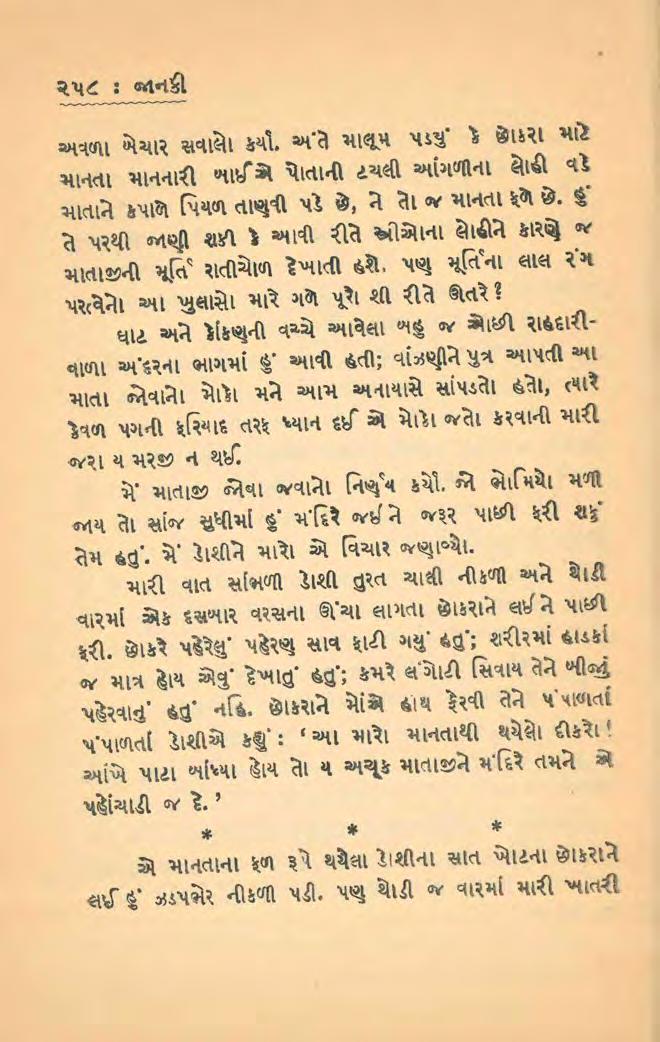 ૨૫૮ : જાનકી
અવળા બેચાર સવાલો કર્યા. અંતે માલૂમ પડયું કે છોકરા માટે
માનતા માનનારી બાઈએ પોતાની ટચલી આંગળીના લોહી વડે
માતાને કપાળે પિયળ તાણવી પડે છે, ને તો જ માનતા ફળે છે. હું
તે પરથી જાણી શકી કે આવી રીતે સ્ત્રીઓના લોહીને કારણે જ
માતાજીની મૂર્તિ રાતીચોળ દેખાતી હશે. પણ મૂર્તિના લાલ રંગ
પરત્વેનો આ ખુલાસો મારે ગળે પૂરો શી રીતે ઊતરે?
ઘાટ અને કોંકણની વચ્ચે આવેલા બહુ જ ઓછી રાહદારી-
વાળા અંદરના ભાગમાં હું આવી હતી; વાંઝણીને પુત્ર આપતી આ
માતા જોવાનો મોકો મને આમ અનાયાસે સાંપડતો હતો, ત્યારે
કેવળ પગની ફરિયાદ તરફ ધ્યાન દઈ એ મોકો જતો કરવાની મારી
જરા ય મરજી ન થઈ.
મેં માતાજી જોવા જવાનો નિર્ણય કર્યો. જો ભોમિયો મળી
જાય તો સાંજ સુધીમાં હું મંદિરે જઈને જરૂર પાછી ફરી શકું
તેમ હતું. મેં ડોશીને મારો એ વિચાર જણાવ્યો.
મારી વાત સાંભળી ડોશી તુરત ચાલી નીકળી અને થોડી
વારમાં એક દસબાર વરસના ઊંચા લાગતા છોકરાને લઈને પાછી
ફરી. છોકરે પહેરેલું પહેરણ સાવ ફાટી ગયું હતું; શરીરમાં હાડકાં
જ માત્ર હોય એવું દેખાતું હતું; કમરે લંગોટી સિવાય તેને બીજું
પહેરવાનું હતું નહિ. છોકરાને મોંએ હાથ ફેરવી તેને પંપાળતાં
પંપાળતાં ડોશીએ કહ્યું : ‘આ મારો માનતાથી થયેલો દીકરો!
આંખે પાટા બાંધ્યા હોય તો ય અચૂક માતાજીને મંદિરે તમને એ
પહોંચાડી જ દે.’
* * *
એ માનતાના ફળ રૂપે થયેલા ડોશીના સાત ખોટના છોકરાને
લઈ હું ઝડપભેર નીકળી પડી. પણ થોડી જ વારમાં મારી ખાતરી